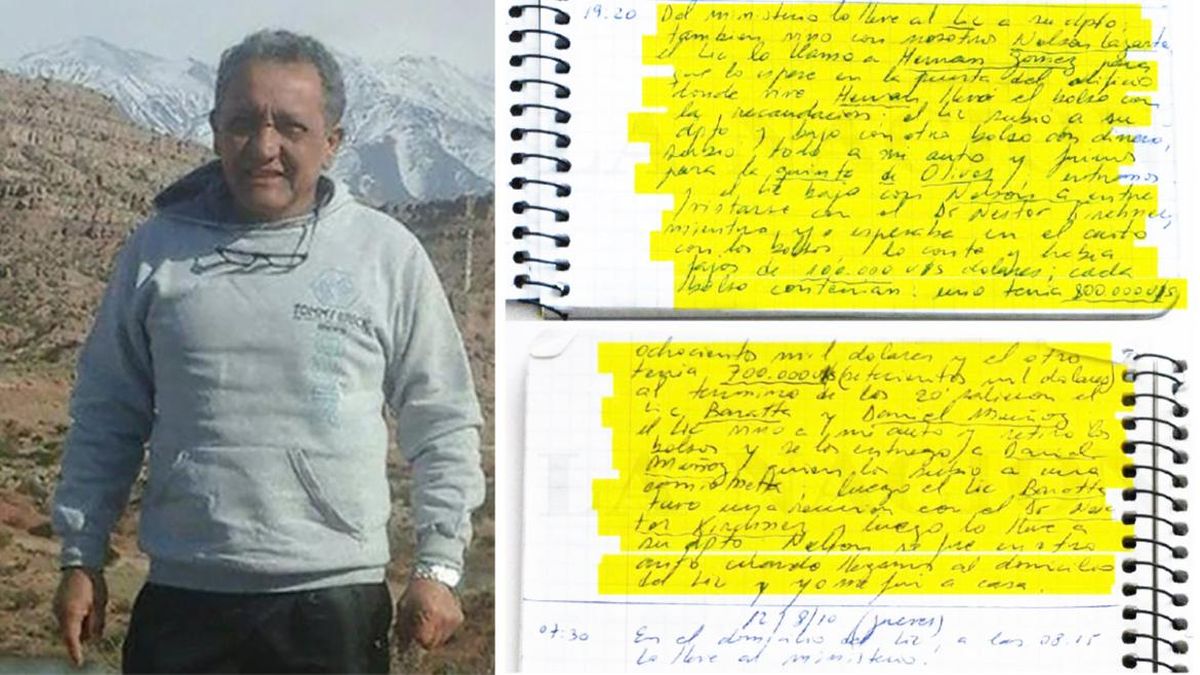 TOMMY
19:20 Del ministerio lo lleve al Lic a su dpto,
tambien vino con nosotros Nelson Lazarte
el Lic lo llamo a Hernan Gomez para
que lo espere en la puerta del edificio
donde vive Hernan llevó el bolso con
la recaudacion: el Lic subio a su
dpto y bajo con otro bolso con dinero,
subio todo a mi auto y fuimos
para la quinta de Olivos, entramos
y el Lic bajo con Nelson a entre
vistarse con el Dr Nestor Kirchner,
mientras yo esperaba en el auto
con los bolsos, lo conte y habia
fajos de 100.000 U$S dolares; cada
bolso contenian: uno tenia 800.000 U$S
ochocientos mil dolares y el otro
tenia 700.000 U$S (setecientos mil dolares)
al termino de los 20' salieron el
Lic Baratta y Daniel Muñoz
el Lic vino a mi auto y retiro los
bolsos y se los entrego a Daniel
Muñoz, quien los subio a una
camioneta; luego el Lic Baratta
tuvo una reunion con el Dr Nes
tor Kirchner y luego lo lleve a
su dpto Nelson se fue en otro
auto cuando llegamos al domicilio
del Lic y yo me fui a casa.
12/8/10 (jueves)
07:30 En el domicilio del Lic, a las 08:15
lo lleve al ministerio.